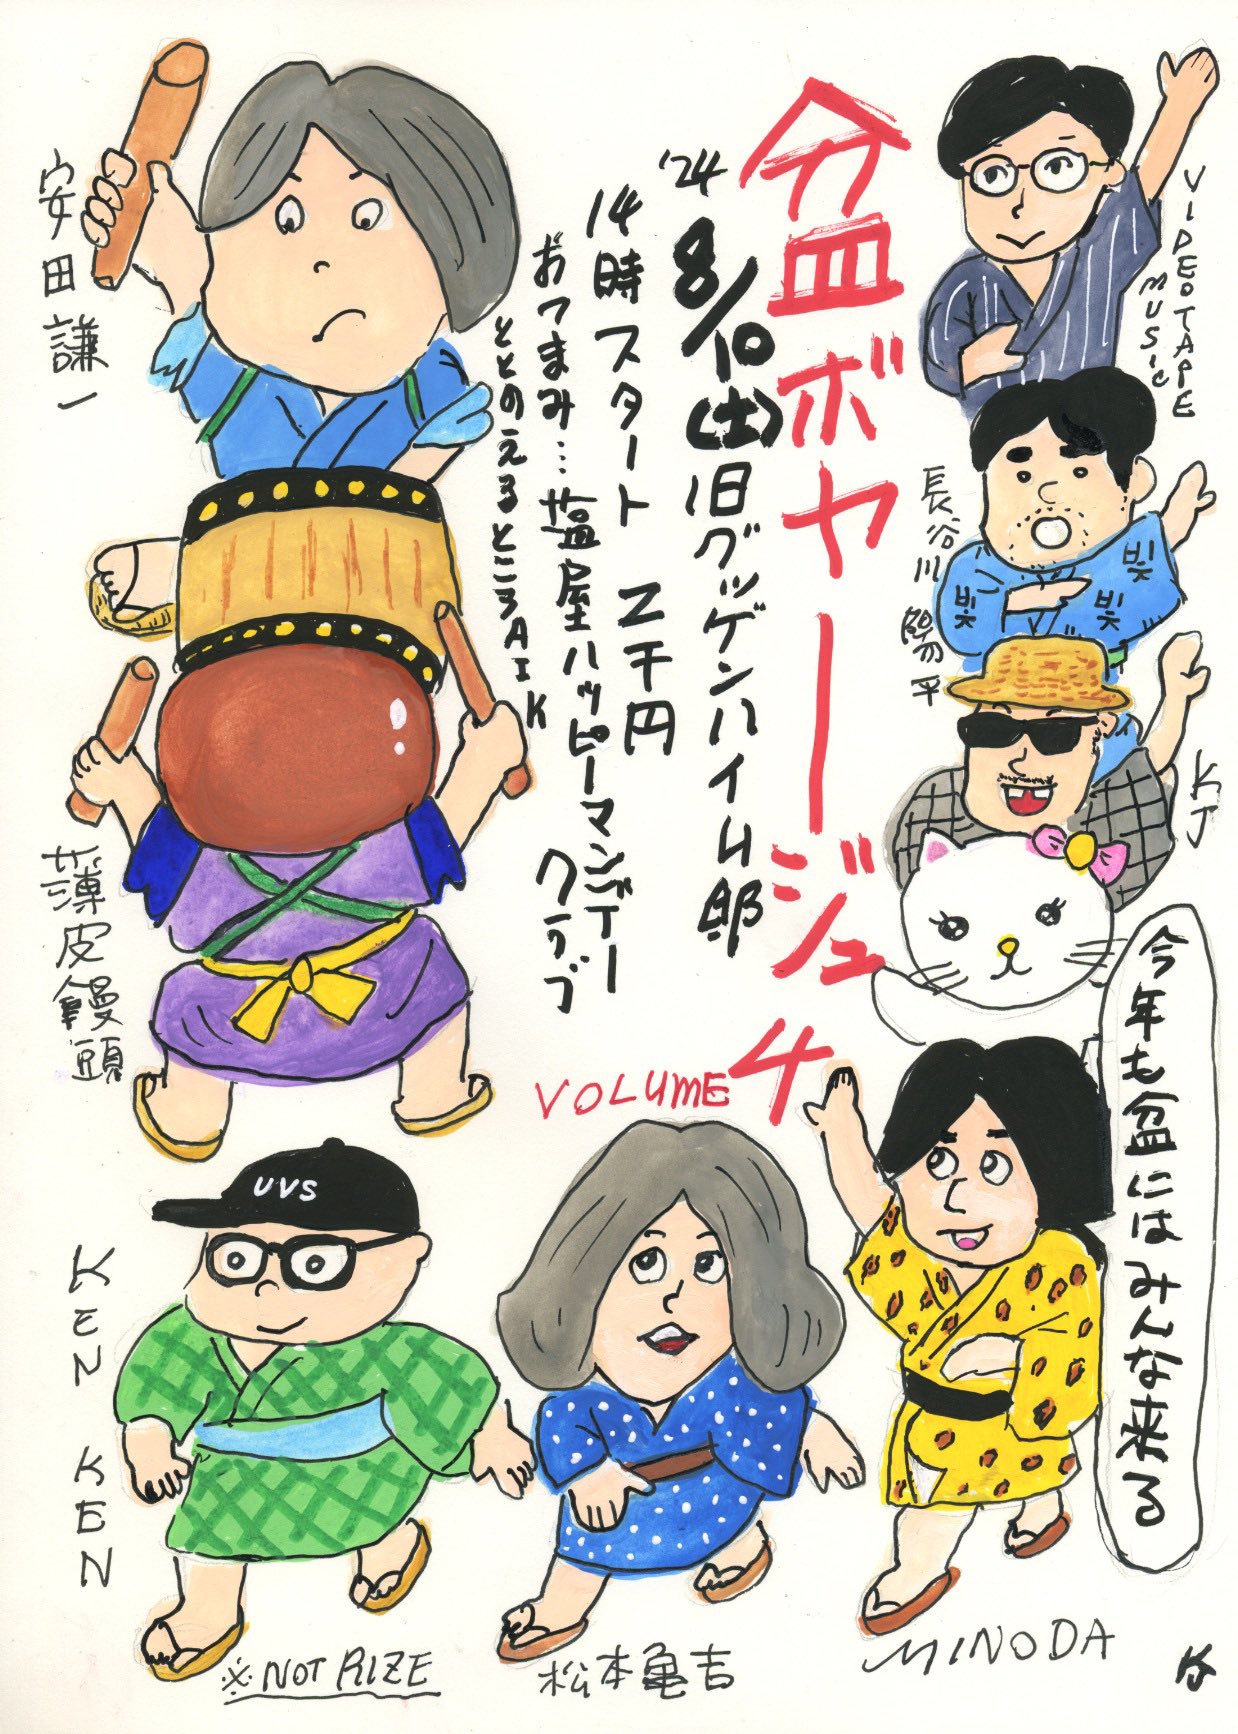 盆ボヤージュ
VOLUME 4
'24
8/10(土)旧グッゲンハイム邸
14時スタート 2千円
おつまみ…塩屋ハッピーマンデークラブ
ととのえるところAIK
VIDEOTAPE
MUSIC
長谷川陽平
빛
빛
빛
KJ
今年も盆にはみんな来る
安田謙一
薄皮饅頭
UVS
KEN KEN
※NOT RIZE
松本亀吉
MINODA
KJ